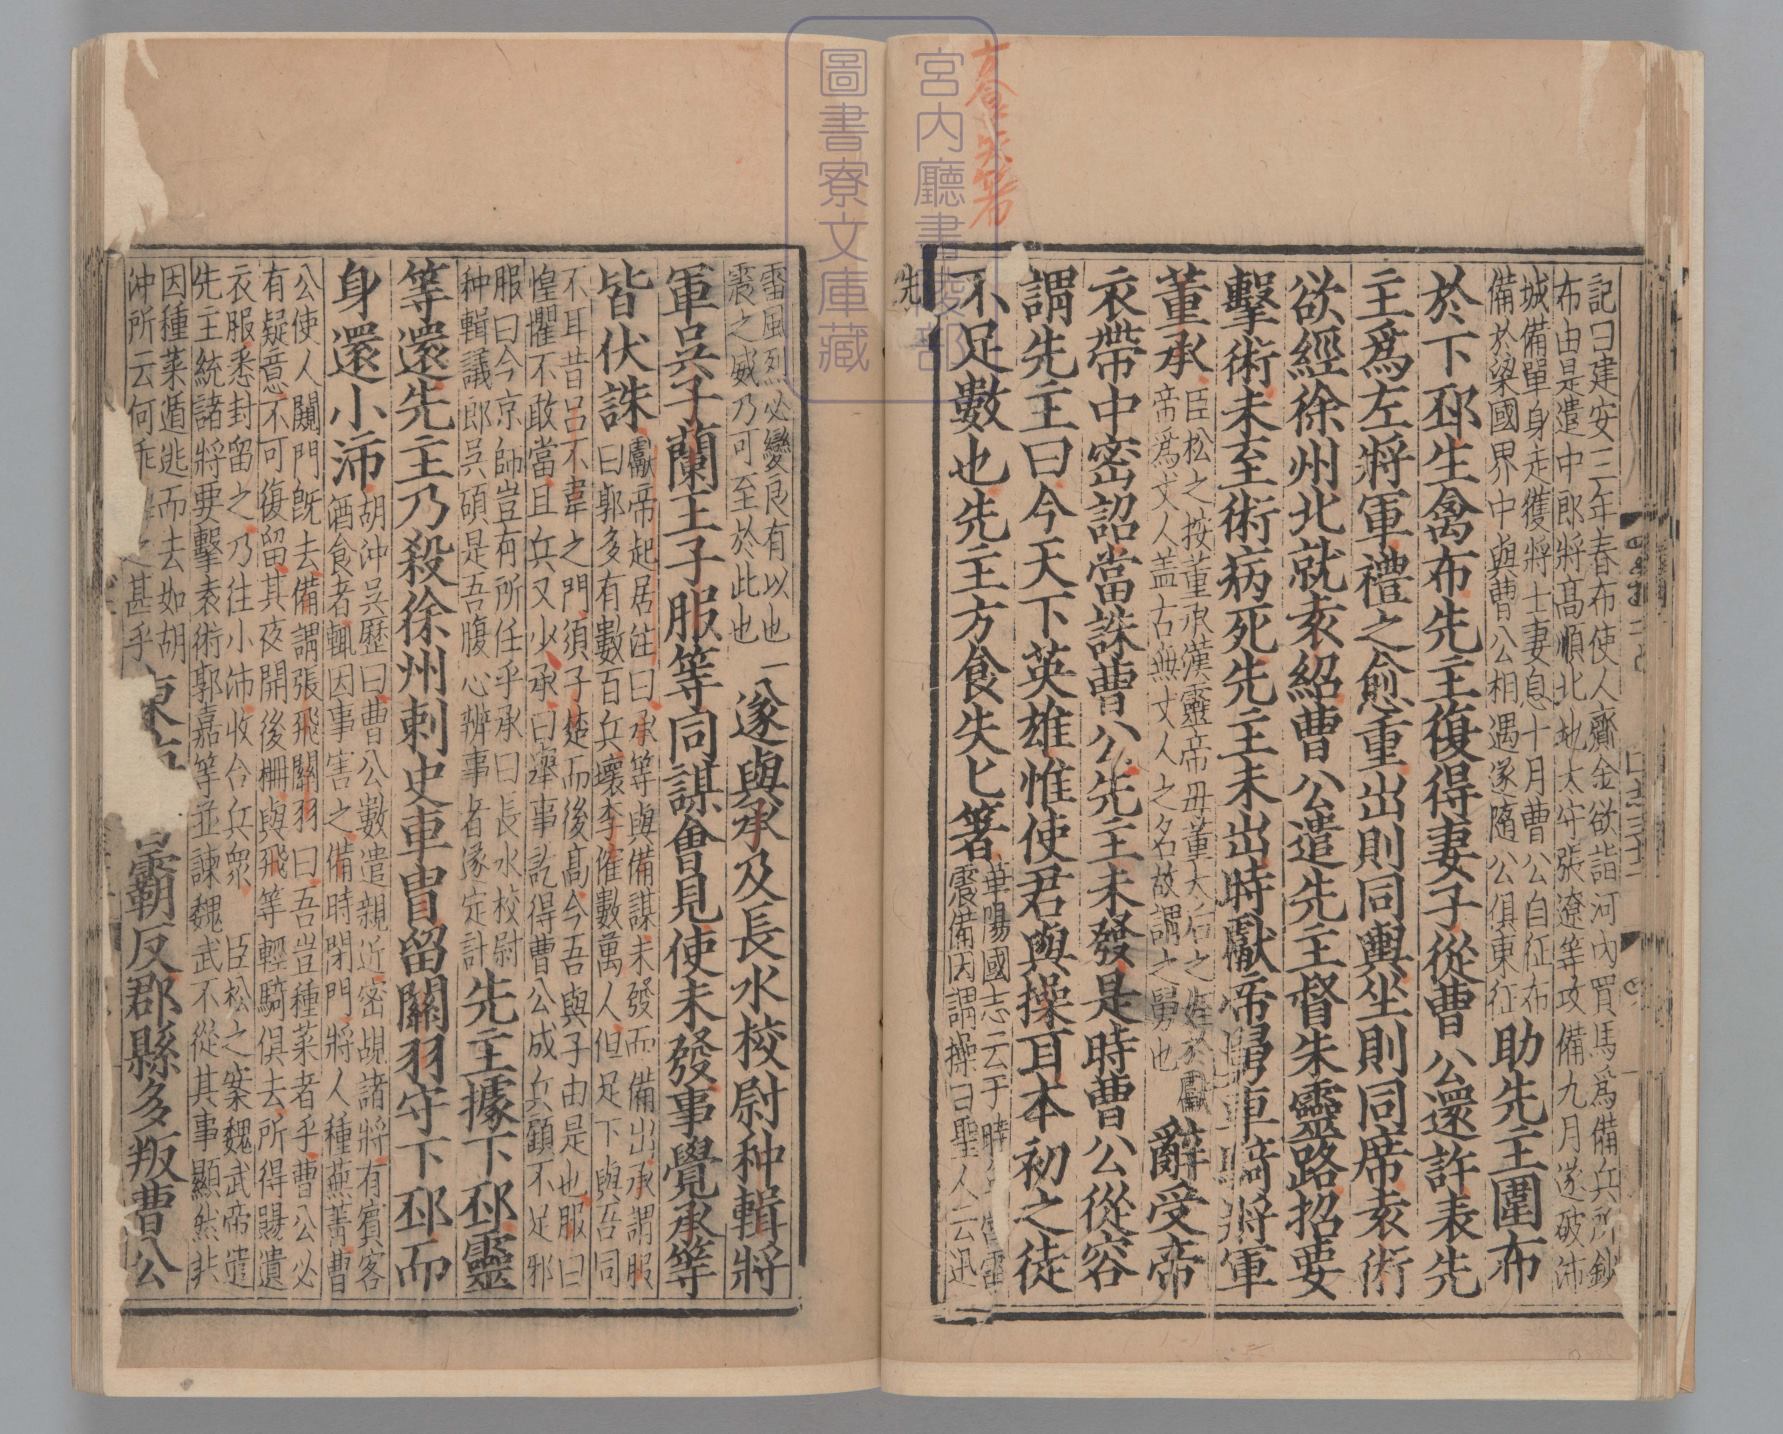 宮内廳書陵部
圖書寮文庫藏
方食失箸
記曰建安三年春布使人齎金欲詣河內買馬爲備兵所鈔
布由是遣中郎將高順北地太守張遼等攻備九月遂破沛
城備單身走獲將士妻息十月曹公自征布
備於梁國界中與曹公相遇遂隨公俱東征
助先主圍布
於下邳生禽布先主復得妻子從曹公還許表先
主爲左將軍禮之愈重出則同輿坐則同席袁術
欲經徐州北就袁紹曹公遣先主督朱靈路招要
擊術未至術病死先主未出時獻帝舅車騎將軍
董承
臣松之按董承漢靈帝母董太后之姪於獻
帝爲丈人蓋古無丈人之名故謂之舅也
辭受帝
衣帶中密詔當誅曹公先主未發是時曹公從容
謂先主曰今天下英雄惟使君與操耳本初之徒
不足數也先主方食失匕箸
華陽國志云于時雷
震備因謂操曰聖人云迅
先
雷風烈必變良有以也
震之威乃可至於此也
遂與承及長水校尉种輯將
軍吳子蘭王子服等同謀會見使未發事覺承等
皆伏誅
獻帝起居注曰承等與備謀未發而備出承謂服
曰郭多有數百兵壞李傕數萬人但足下與吾同
不耳昔呂不韋之門須子楚而後高今吾與子由是也服曰
惶懼不敢當且兵又少承曰舉事訖得曹公成兵顧不足邪
服曰今京師豈有所任乎承曰長水校尉
种輯議郎吳碩是吾腹心辨事者遂定計
先主據下邳靈
等還先主乃殺徐州刺史車冑留關羽守下邳而
身還小沛
胡沖吳歷曰曹公數遣親近密覘諸將有賓客
酒食者輒因事害之備時閉門將人種蕪菁曹
公使人闚門旣去備謂張飛關羽曰吾豈種菜者乎曹公必
有疑意不可復留其夜開後柵與飛等輕騎俱去所得賜遺
衣服悉封留之乃往小沛收合兵衆 臣松之案魏武帝遣
先主統諸將要擊袁術郭嘉等並諫魏武不從其事顯然非
因種菜遁逃而去如胡
沖所云何乖 之甚乎
東
霸反郡縣多叛曹公